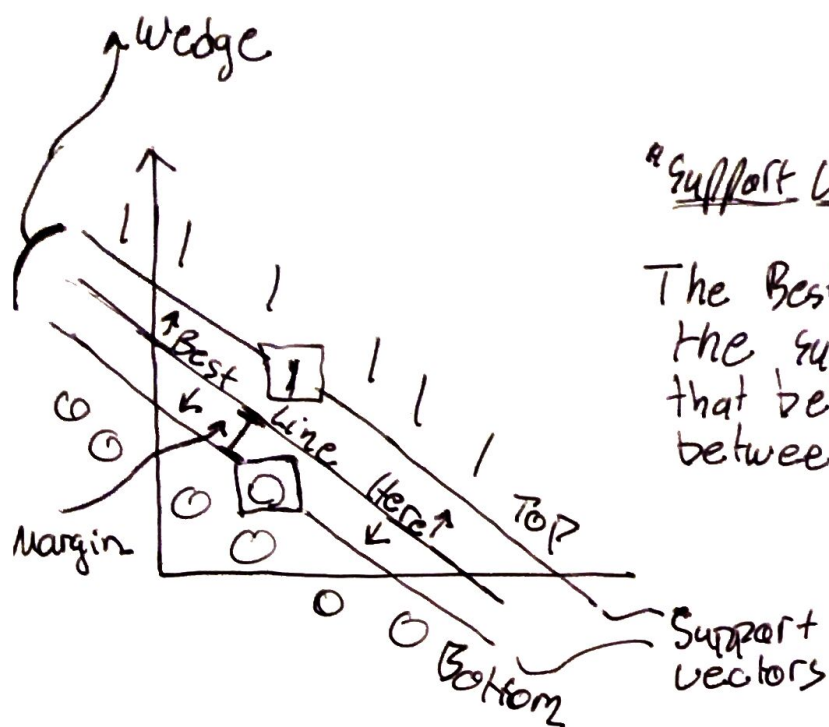 Wedge
"Support
The Best
the su
that be
between
1 1 1 1 1 1 1
↑Best
Line
Here↑
Margin
Top
Bottom
Support
vectors